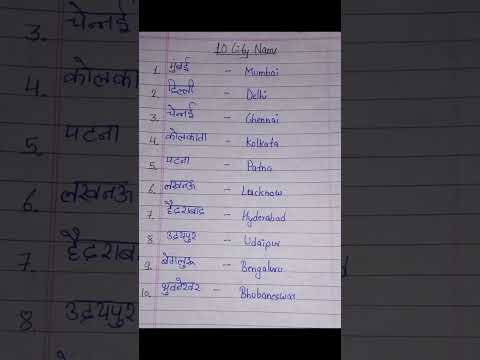 10 City Name
1. मुंबई - Mumbai
2. दिल्ली - Delhi
3. चेन्नई - Chennai
4. कोलकाता - Kolkata
5. पटना - Patna
6. लखनऊ - Lucknow
7. हैदराबाद - Hyderabad
8. उदयपुर - Udaipur
9. बेंगलुरू - Bengaluru
10. भुवनेश्वर - Bhubaneswar
3. चेन्नई
4. कोलका
5. पटना
6. लखनऊ
7. हैदराबा
8. उदयपुर